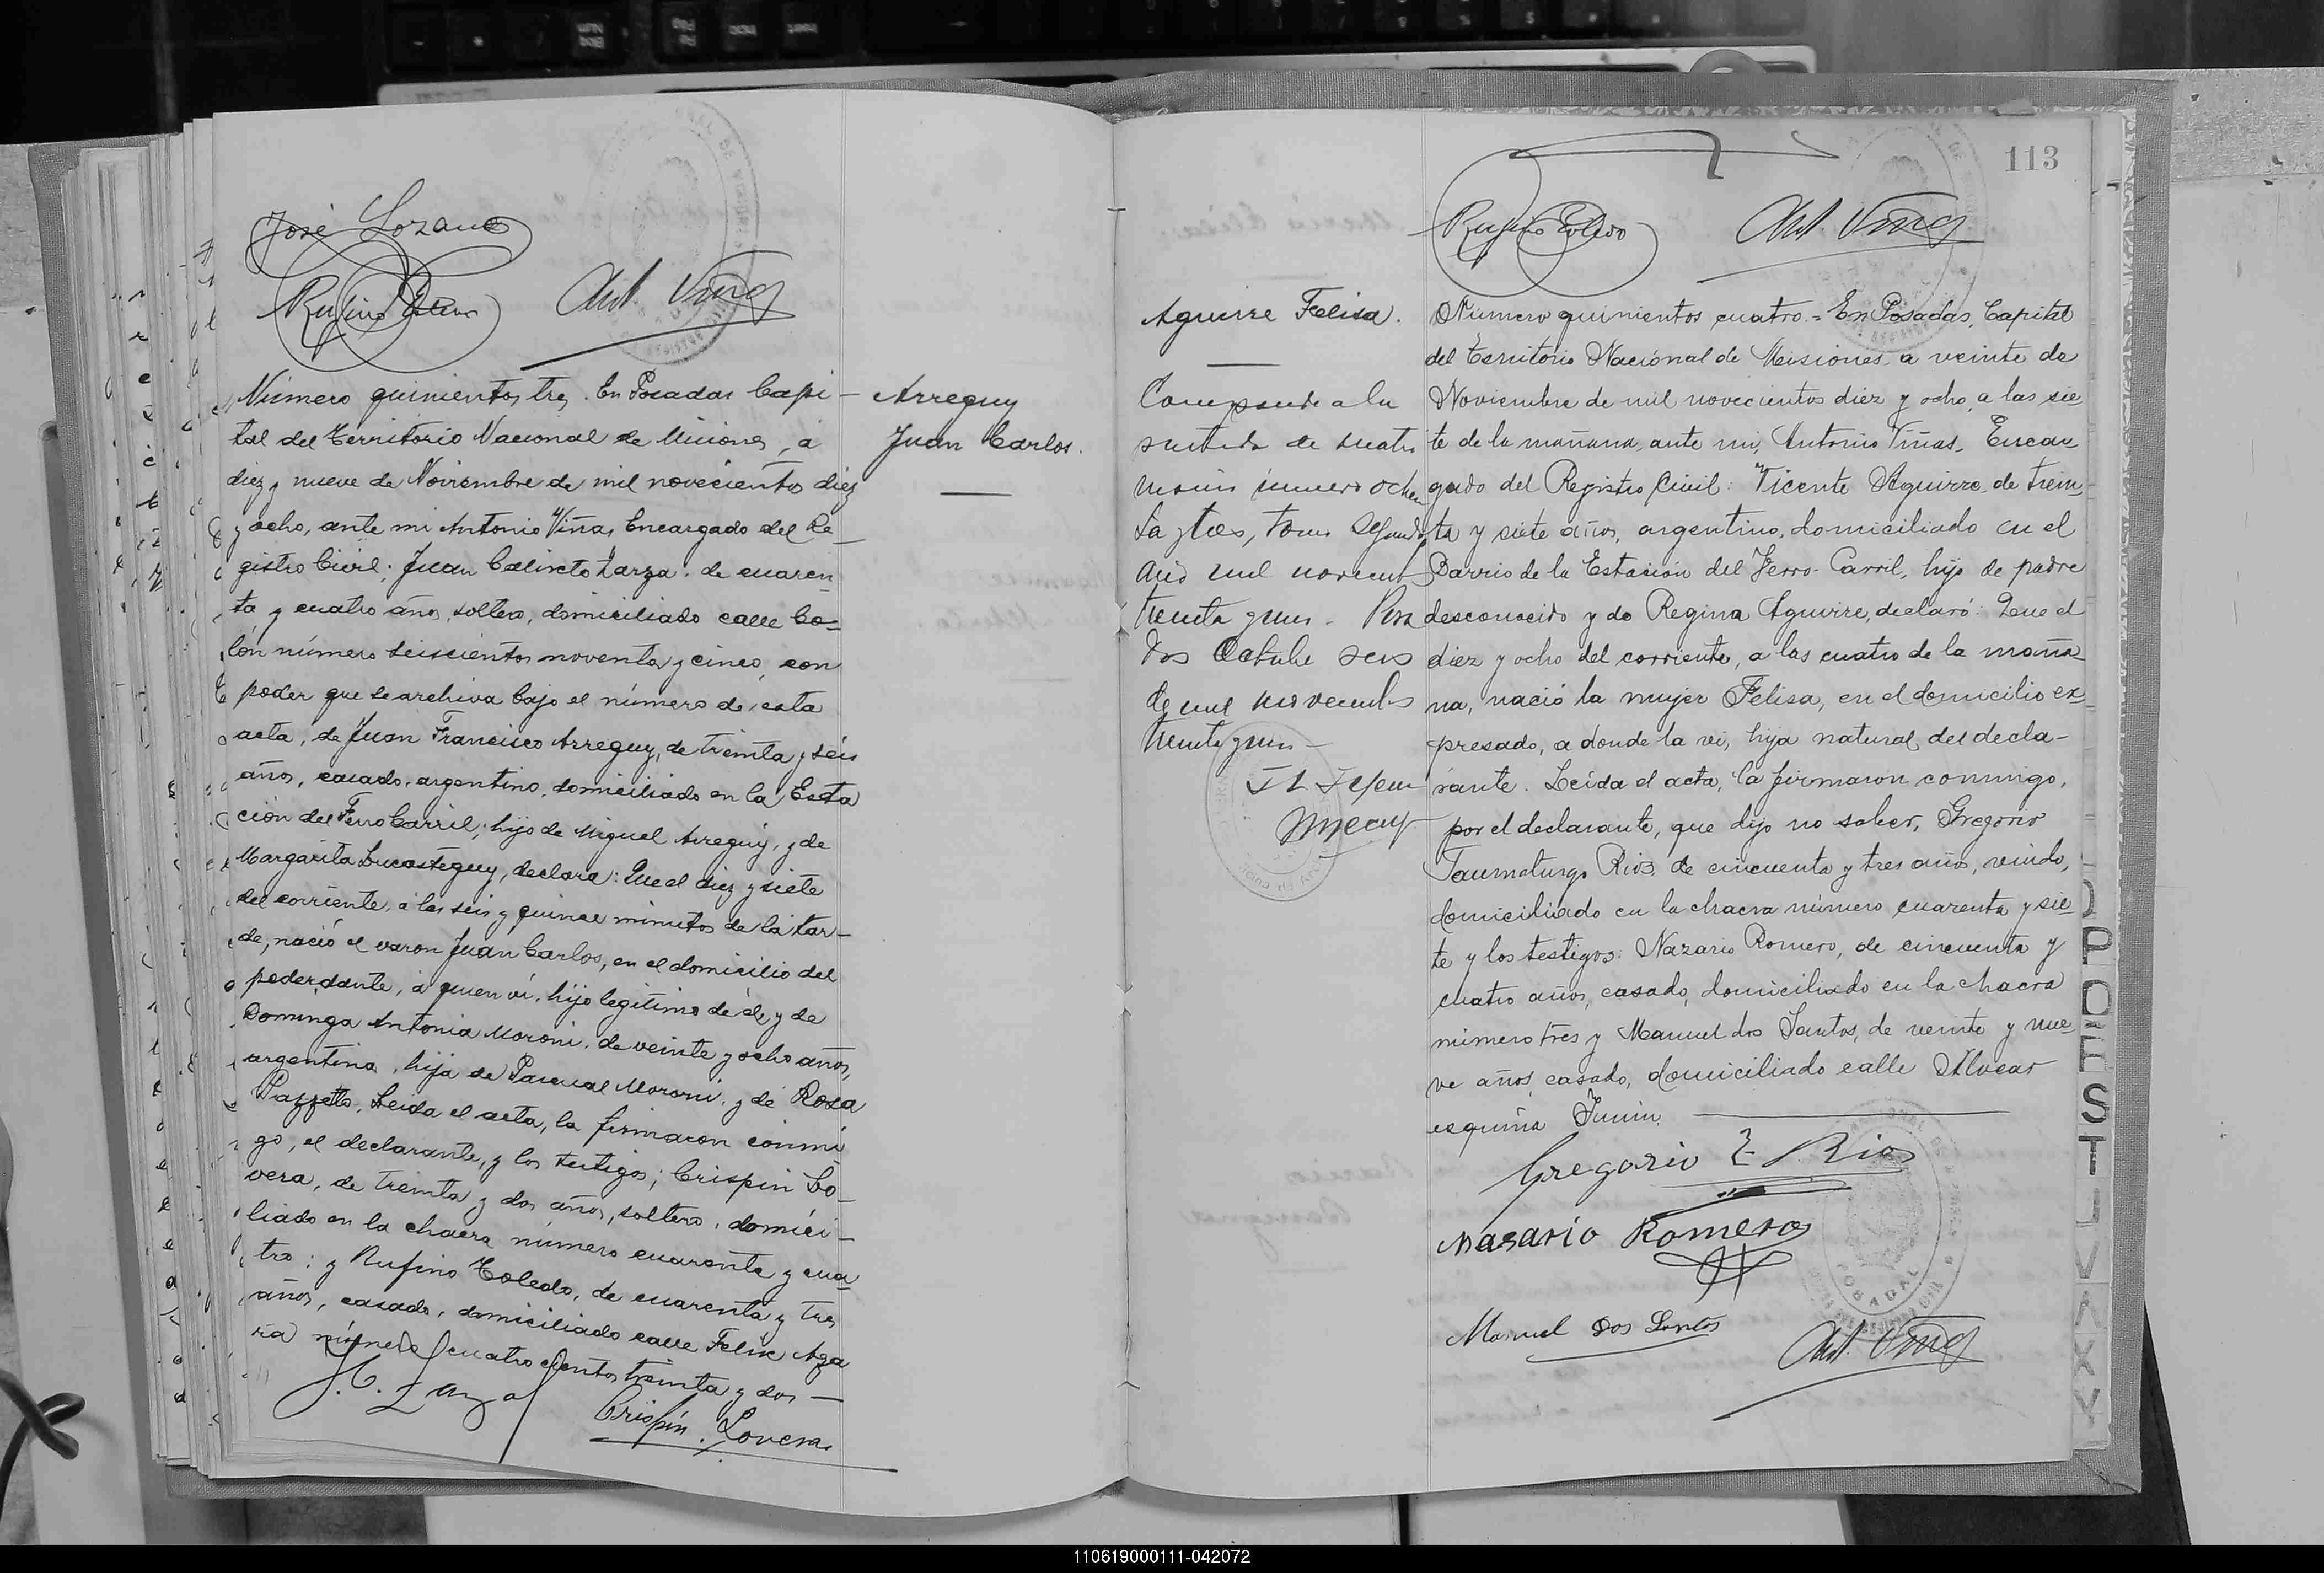 José Lozano
Rufino Toledo Ant. Viñas
Número quinientos tres. En Posadas Capi-
tal del Territorio Nacional de Misiones, a
diez y nueve de Noviembre de mil novecientos diez
y ocho, ante mi Antonio Viñas Encargado del Re-
gistro Civil; Juan Calixto Zarza. de cuaren
ta y cuatro años, soltero, domiciliado calle Co-
lón número seiscientos noventa y cinco, con
poder que se archiva bajo el número de esta
acta, de Juan Francisco Arreguy, de treinta y seis
años, casado, argentino, domiciliado en la Esta
ción del Ferro Carril; hijo de Miguel Arreguy, y de
Margarita Lucasteguy, declara: Que el diez y siete
del corriente, a las seis y quince minutos de la tar-
de, nació el varon Juan Carlos, en el domicilio del
poderdante, á quien ví, hijo legitimo de él y de
Dominga Antonia Moroni, de veinte y ocho años,
argentina, hija de Pascual Moroni, y de Rosa
Leida el acta, la firmaron conmi
go, el declarante, y los testigos; Crispin Lo-
vera, de treinta y dos años, soltero, domici-
liado en la chacra número cuarenta y cua
tro: y Rufino Toledo, de cuarenta y tres
años, casado, domiciliado calle Felix Aza
ra número cuatrocientos treinta y dos —
J. C. Zarza
Crispín. Lovera
Arreguy
Juan Carlos.
113
Rufino Toledo Ant. Viñas
Aguirre Felisa.
Corresponde a la
de cuatro
número ochen
ta y tres, tomo segundo
año mil novecient
treinta y uno. Posa
das Octubre seis
de mil novecientos
treinta y uno —
Número quinientos cuatro.= En Posadas, Capital
del Territorio Nacional de Misiones a veinte de
Noviembre de mil novecientos diez y ocho, a las sie-
te de la mañana, ante mi, Antonio Viñas, Encar
gado del Registro Civil: Vicente Aguirre, de trein-
ta y siete años, argentino, domiciliado en el
Barrio de la Estación del Ferro-Carril, hijo de padre
desconocido y de Regina Aguirre, declaró: Que el
diez y ocho del corriente, a las cuatro de la maña-
na, nació la mujer Felisa, en el domicilio ex-
presado, a donde la ví, hija natural del decla-
rante. Leída el acta, la firmaron conmigo,
por el declarante, que dijo no saber, Gregorio
Taumaturgo Rios, de cincuenta y tres años, viudo,
domiciliado en la chacra número cuarenta y sie-
te y los testigos: Nazario Romero, de cincuenta y
cuatro años, casado, domiciliado en la chacra
número tres y Manuel dos Santos, de veinte y nue-
ve años, casado, domiciliado calle Alvear
esquina Junin.
Gregorio T Rios
Nasario Romero
Manuel Dos Santos
Ant. Viñas
POSADAS
P
S
T
V
X
Y
110619000111-042072